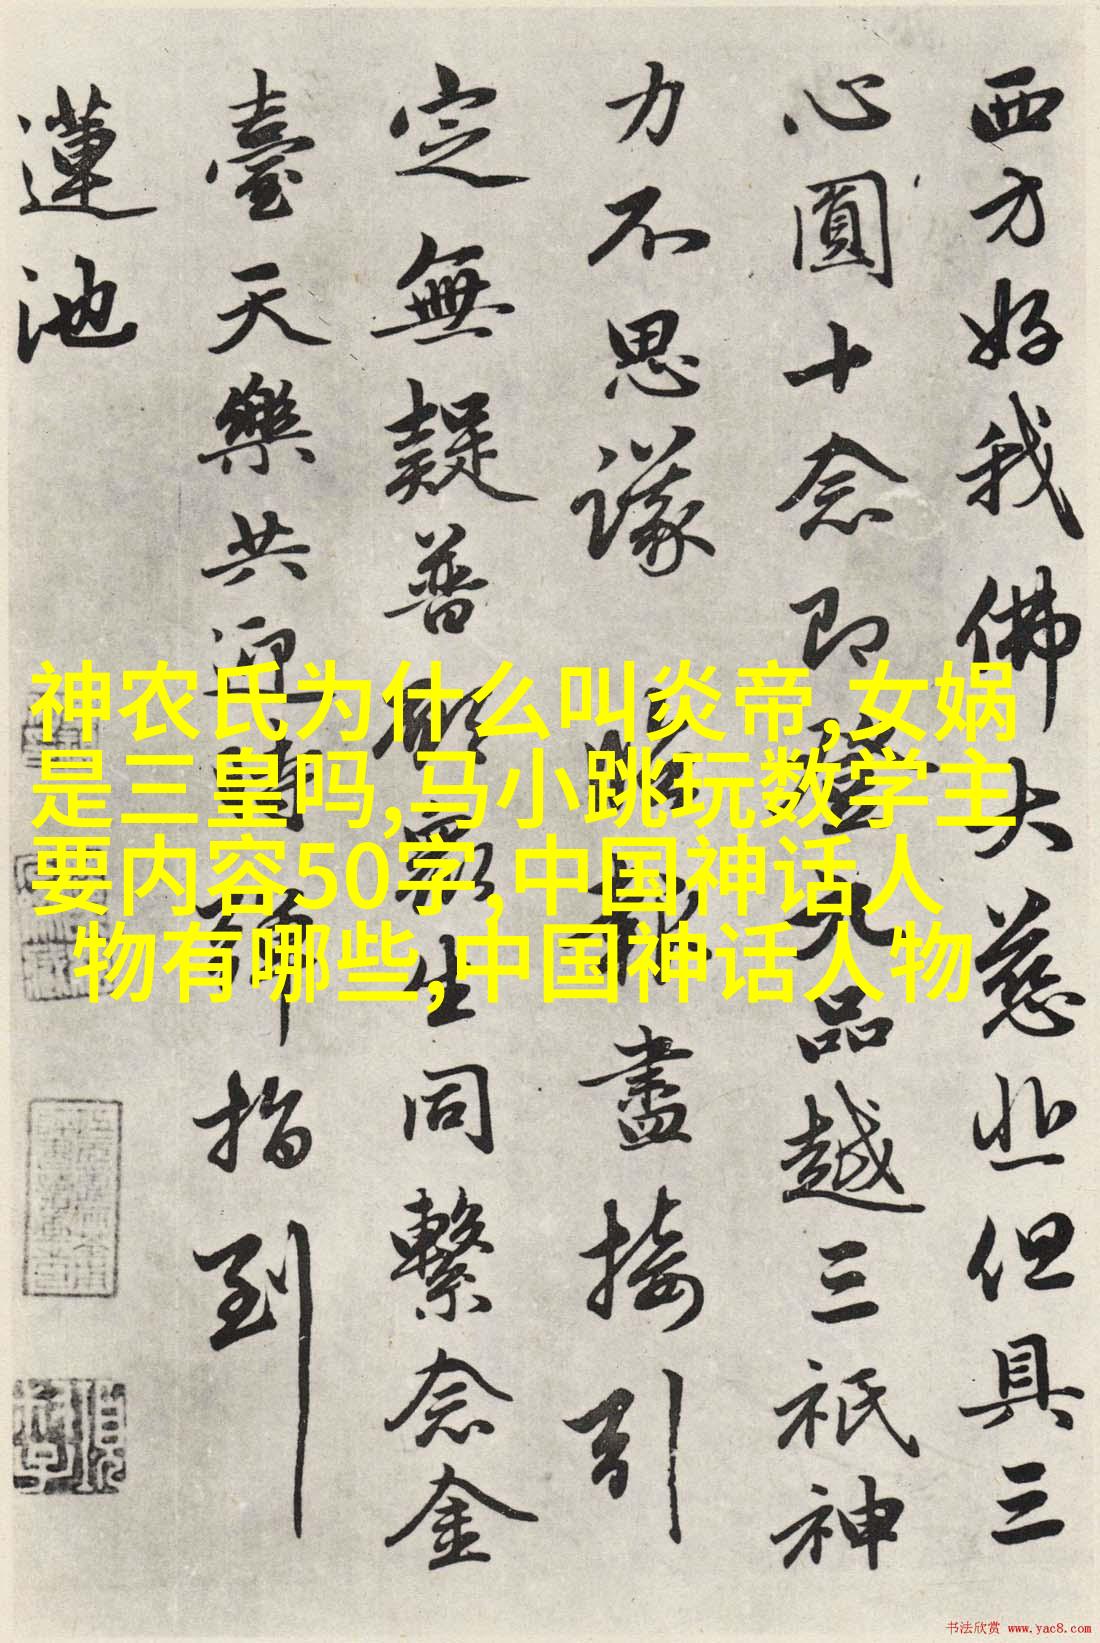 西方好我佛大慈悲但具三
心圓十念即登九品越三祇神
力不思議 臨報盡接引
定無疑普願眾生同繫念金
臺天樂共迎時彈指到
蓮池
神农氏为什么叫炎帝,女娲
是三皇吗,马小跳玩数学主
要内容50字,中国神话人
物有哪些,中国神话人物
书法欣赏 www.yac8.com